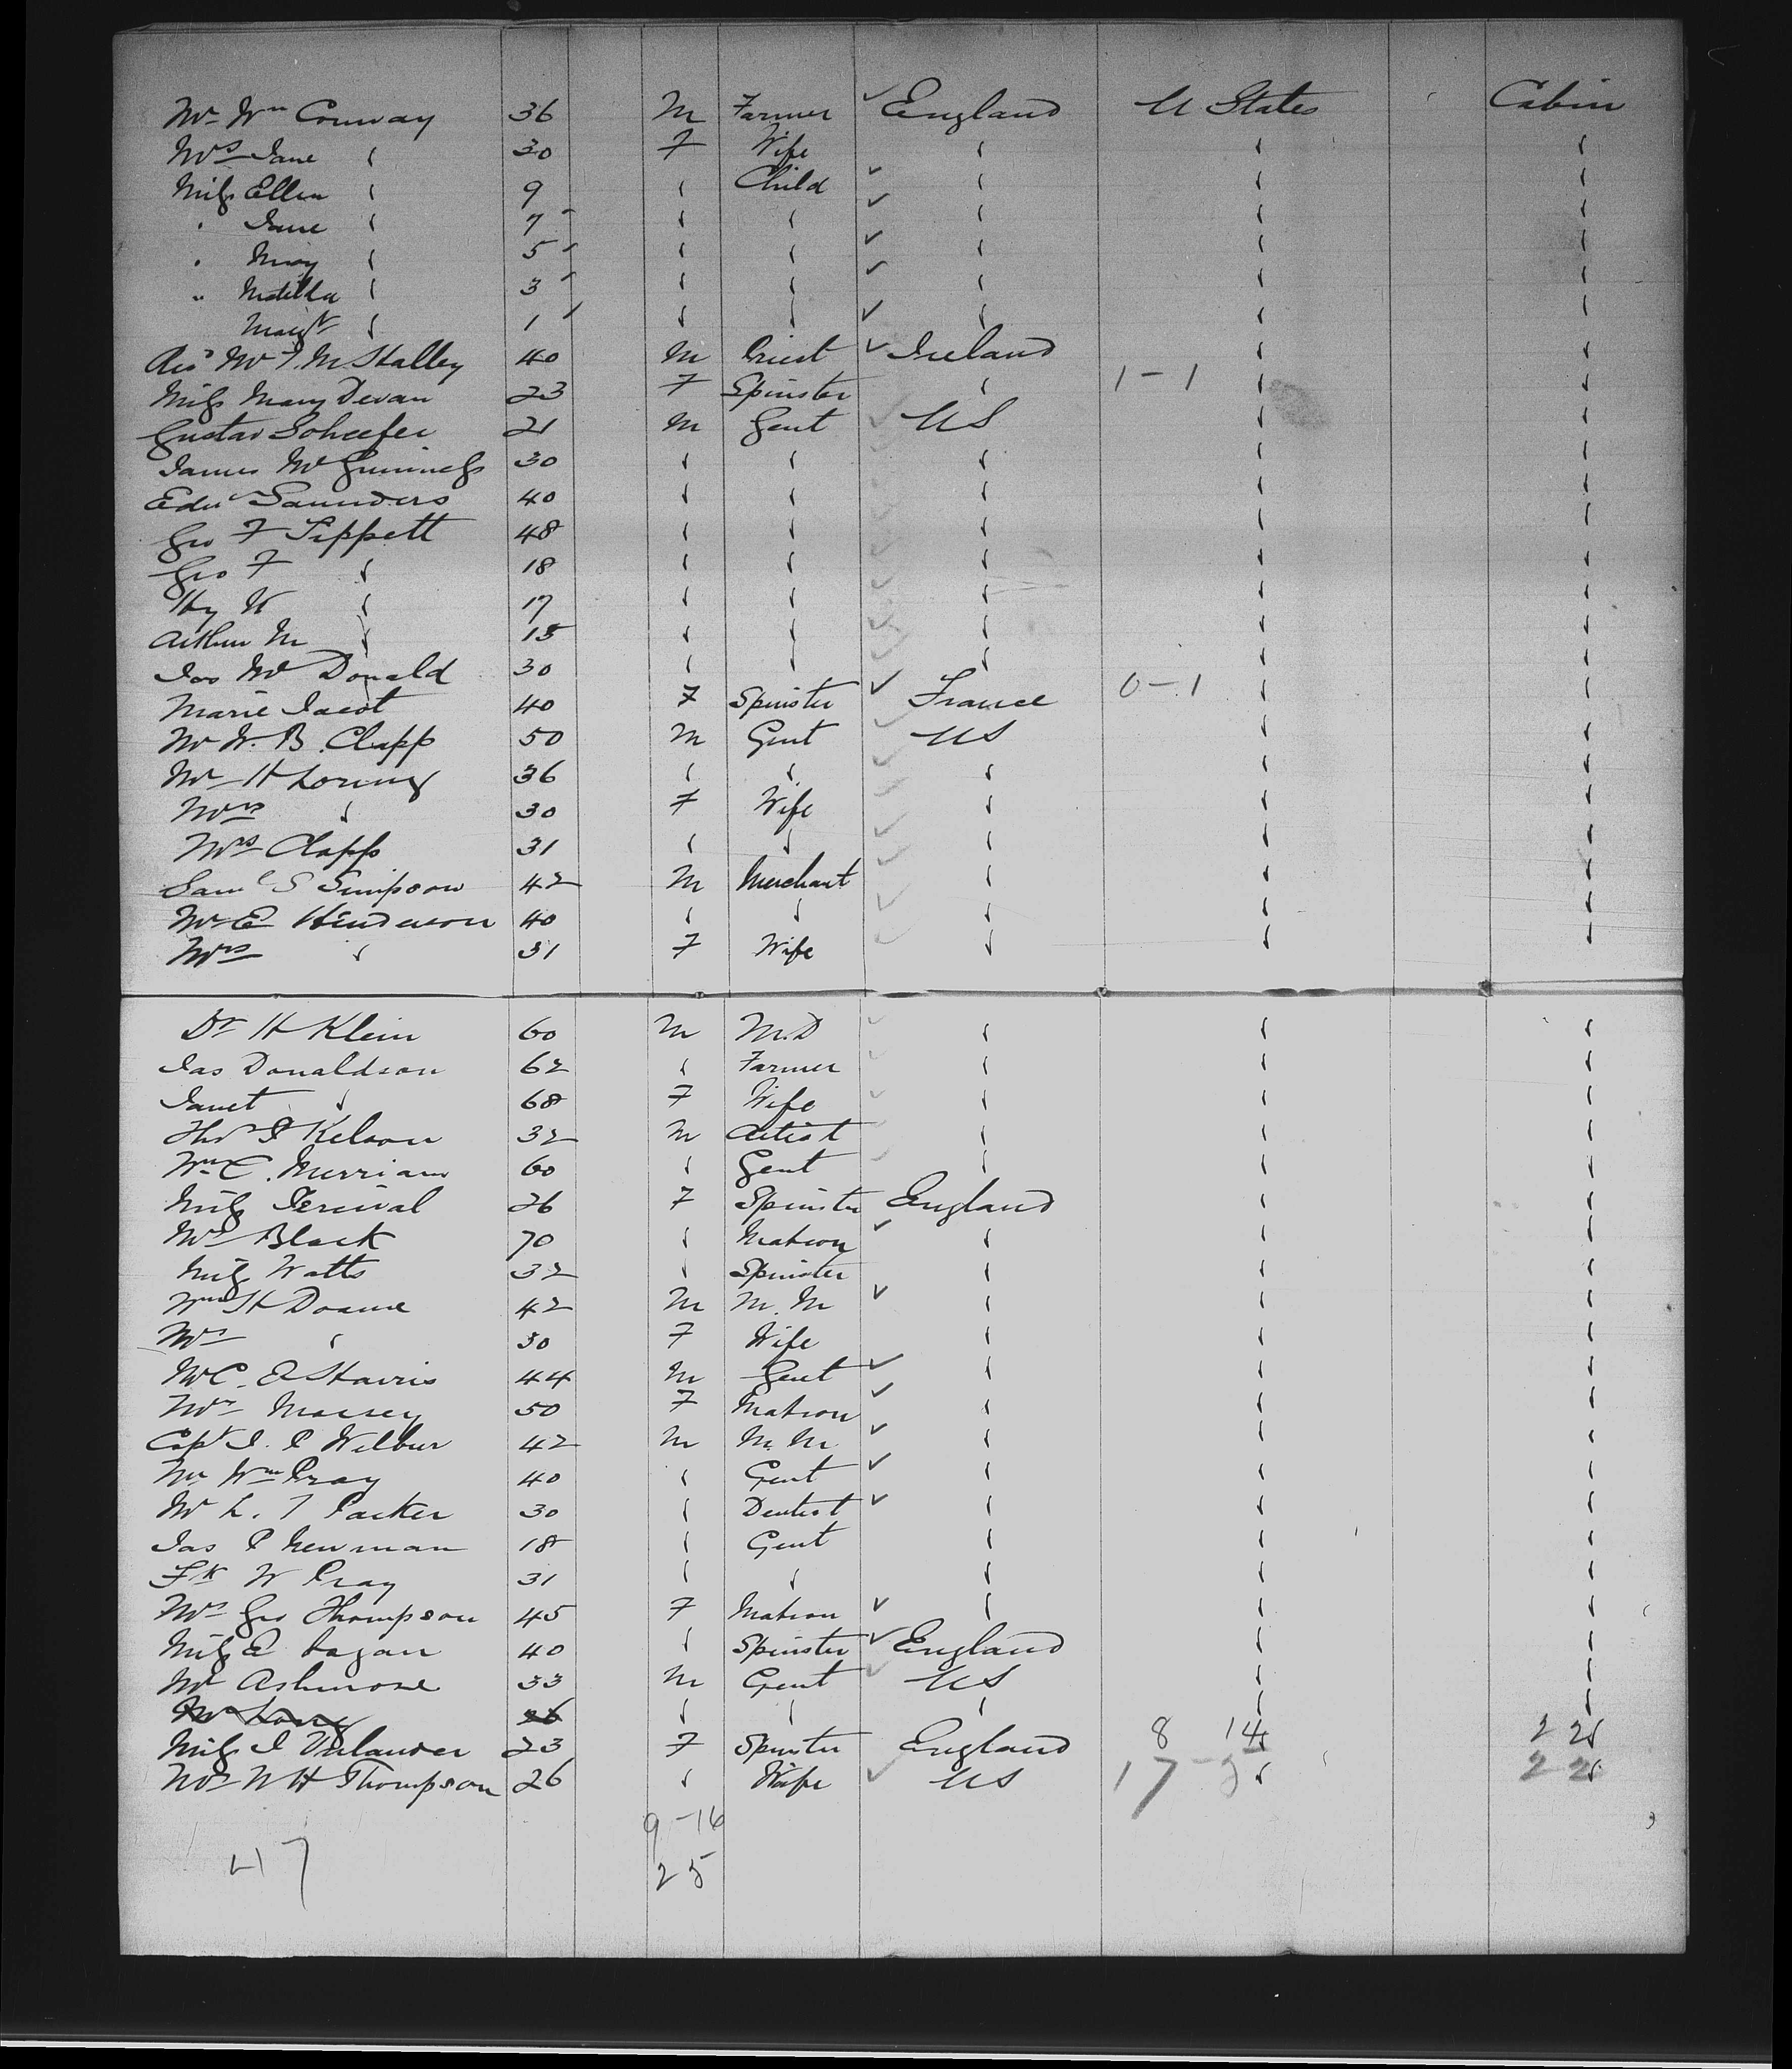 Mr Wm Conway 36 M Farmer ✓ England U States Cabin
Mrs Jane " 30 F Wife " " "
Miss Ellen " 9 " Child ✓ " " "
" Jane " 7 " " ✓ " " "
" May " 5 " " ✓ " " "
" Matilda " 3 " " ✓ " " "
Margt " 1 " " ✓ " " "
Rev Mr T. M. Halley 40 M Priest ✓ Ireland " "
Miss Mary Devan 23 F Spinster " 1-1 " "
Gustav Scheefer 21 M Gent ✓ US " "
James McGuinness 30 " " " " "
Edw Saunders 40 " " " " "
Geo F Tippett 48 " " " " "
Geo F " 18 " " " " "
Hy W " 17 " " " " "
Arthur M " 15 " " " " "
Jas McDonald 30 " " " " "
Marie Jacot 40 F Spinster ✓ France 0-1 " "
Mr W. B. Clapp 50 M Gent ✓ US " "
Mr H Loring 36 " " ✓ " " "
Mrs " 30 F Wife ✓ " " "
Mrs Clapp 31 " " ✓ " " "
Saml S Simpson 42 M Merchant ✓ " " "
Mr E Henderson 40 " " ✓ " " "
Mrs " 31 F Wife " " "
Dr H Klein 60 M M.D ✓ " " "
Jas Donaldson 62 " Farmer ✓ " " "
Janet " 68 F Wife ✓ " " "
Thos P Kelson 32 M Artist ✓ " " "
Wm C. Merriam 60 " Gent ✓ " " "
Miss Percival 26 F Spinster England " "
Mrs Black 70 " Matron ✓ " " "
Miss Watts 32 " Spinster " " "
Wm H Doane 42 M M. M ✓ " " "
Mrs " 30 F Wife " " "
Mr C. E Harris 44 M Gent ✓ " " "
Mrs Massey 50 F Matron ✓ " " "
Capt J. P Wilbur 42 M M. M. ✓ " " "
Mr Wm Pray 40 " Gent ✓ " " "
Mr L. T Packer 30 " Dentist ✓ " " "
Jas P Newman 18 " Gent " " "
Fk W Pray 31 " " " " "
Mrs Geo Thompson 45 F Matron ✓ " " "
Miss E Logan 40 " Spinster ✓ England " "
Mr Ashmore 33 M Gent ✓ US " "
Mr Long 26 " " " " "
Miss J 23 F Spinster England 8 14 " 22 "
Mrs W H Thompson 26 " Wife ✓ US 17 " 22 "
9-16
47 25